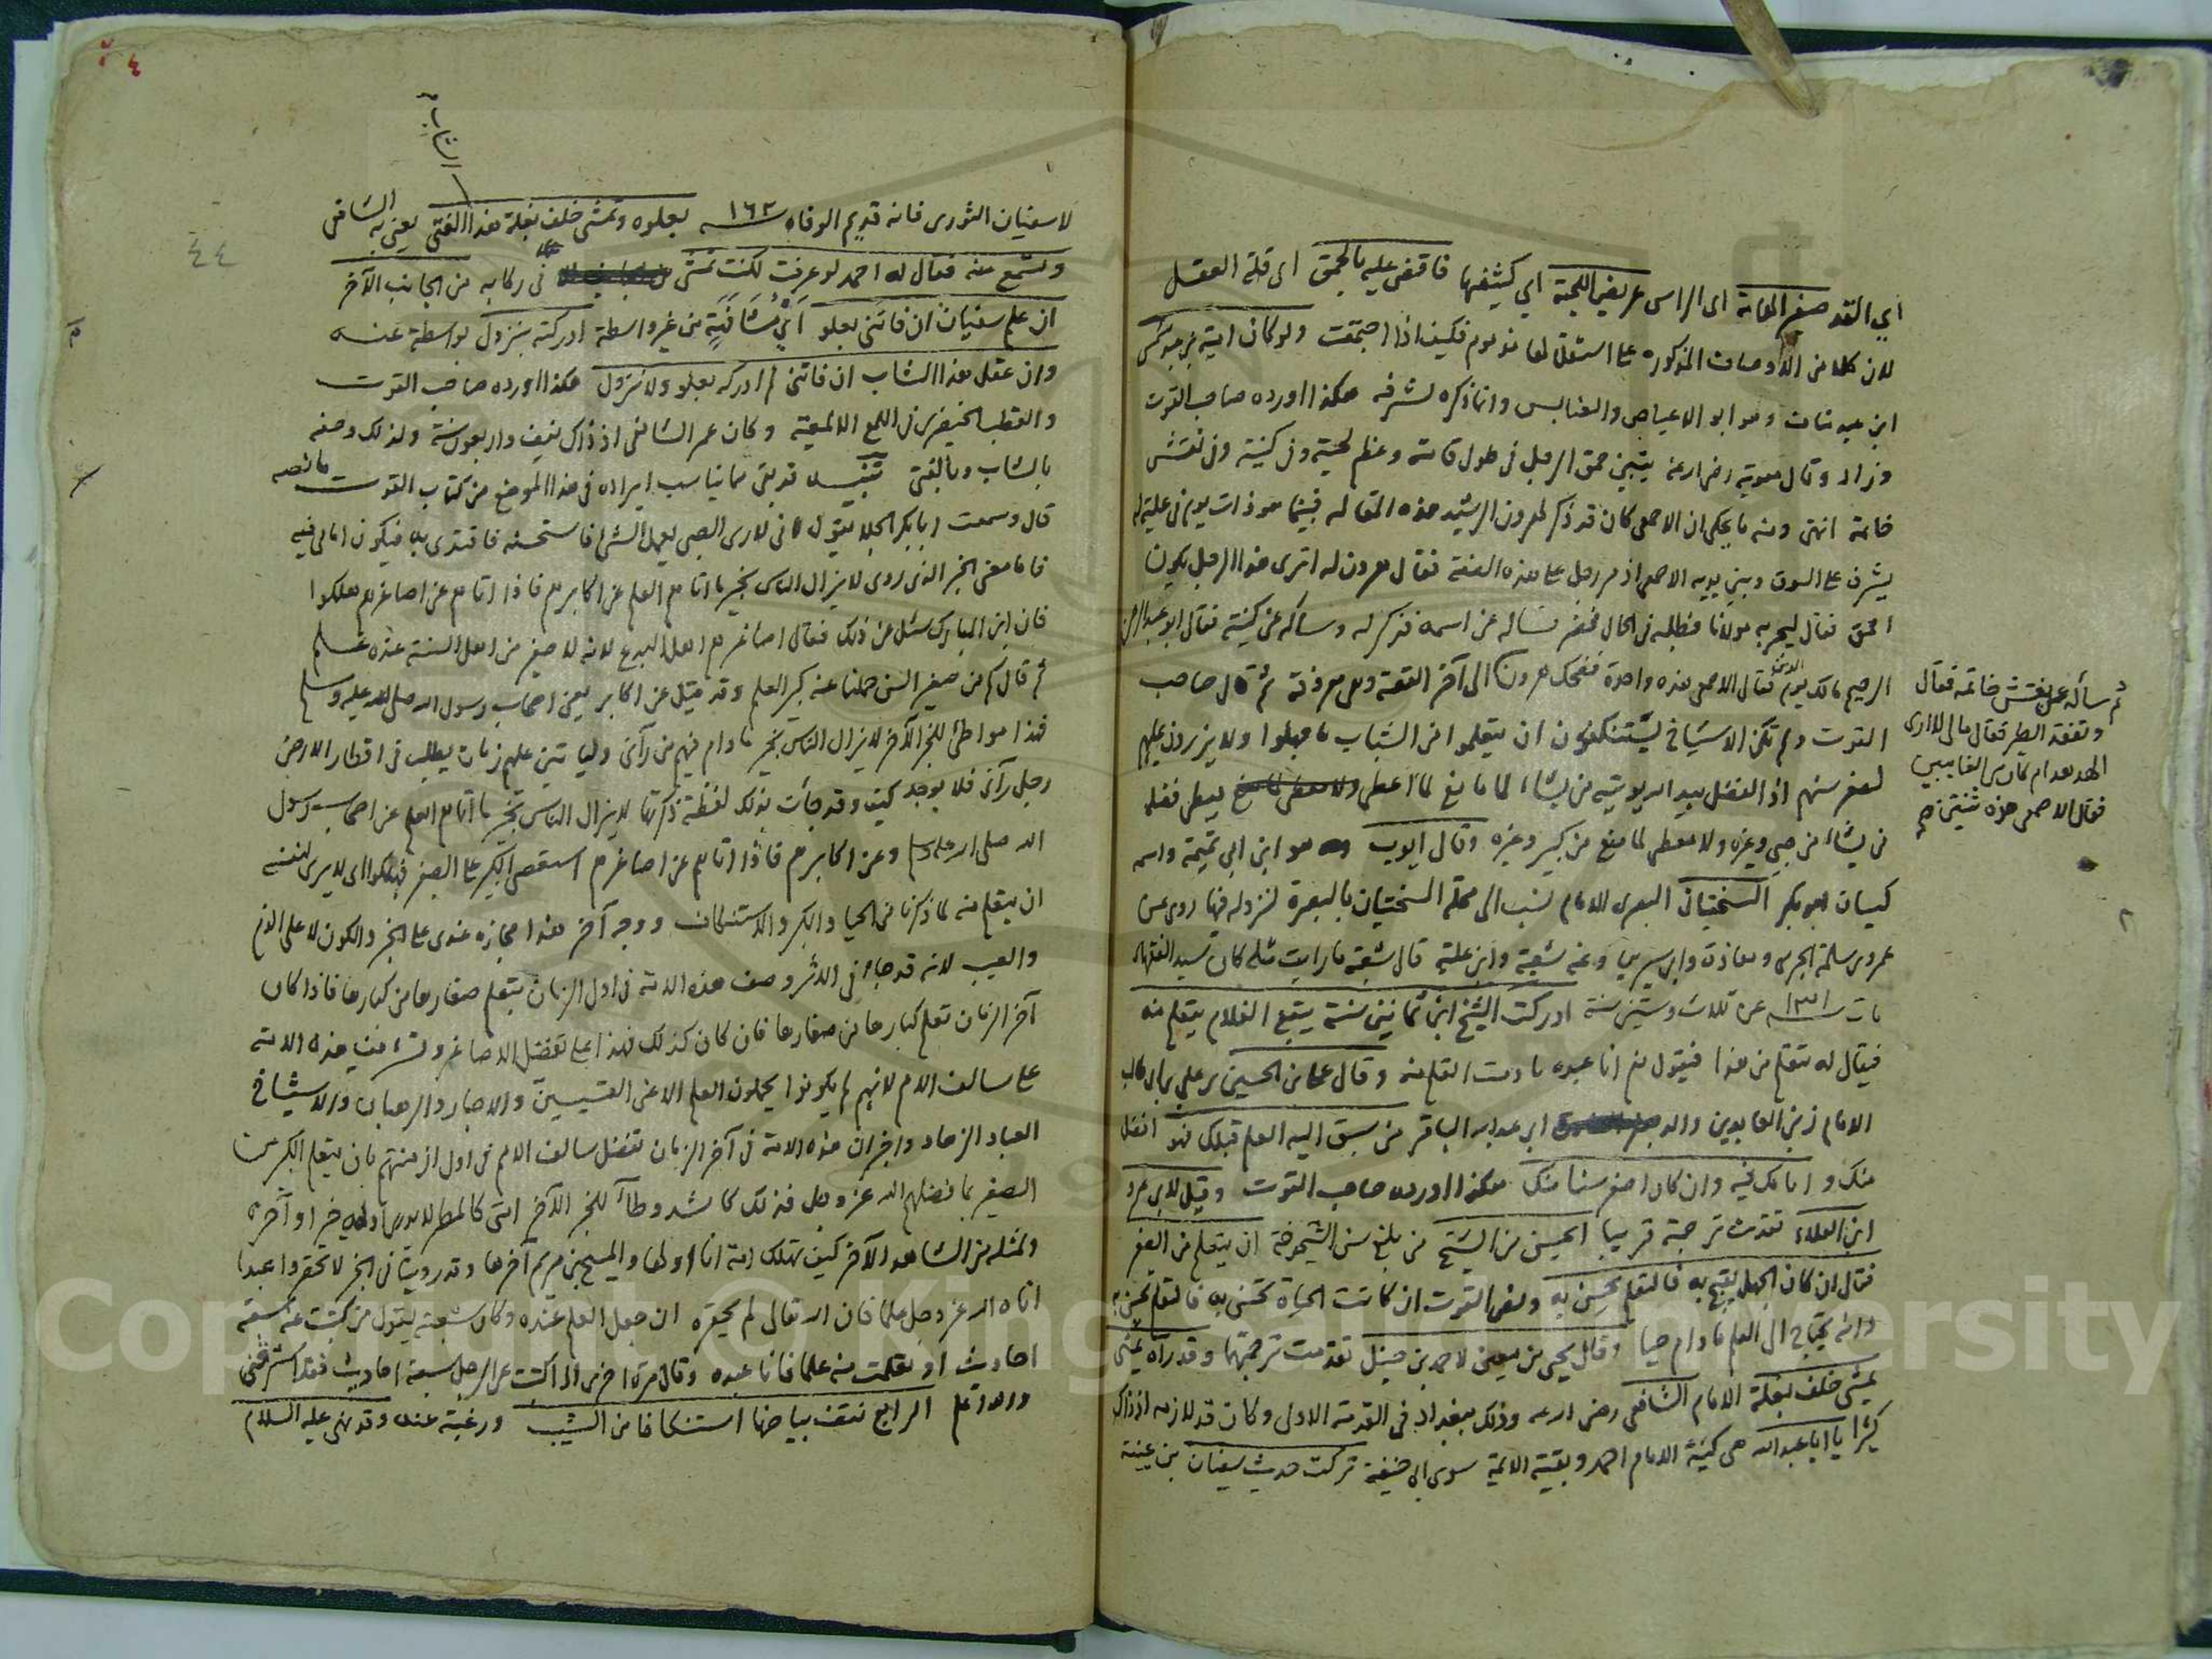 اي القد صغير الهامة اى الراس عريض اللحية اي كثيفها فاقض عليه بالحمق اى قلة العقل
لان كلا من الاوصاف المذكورة على استقلالها مذموم فكيف اذا اجتمعت ولو كان امية بن عبد شمس
ابن عبد مناف وهو ابو الاعياص والعنابس وانما ذكره لشرفه هكذا اورده صاحب القوت
وزاد وقال معوية رضى الله عنه يتبين حمق الرجل في طول قامته وعظم لحيته وفى كنيته وفى نقش
خاتمه انتهى ومنه ما يحكى ان الاصمعى كان قد ذكر لهرون الرشيد هذه المقالة فبينما هو ذات يوم فى علية له
يشرف على السوق وبين يديه الاصمعى اذ مر رجل على هذه الصفة فقال هرون له اترى هذا الرجل يكون
احمق فقال ليجربه مولانا فطلبه فى الحال فحضر فساله عن اسمه فذكر له وساله عن كنيته فقال ابو عبد الرحمن
الرحيم مالك يوم الدين فقال الاصمعى هذه واحدة فضحك هرون الى آخر القصة وهى معروفة ثم قال صاحب
القوت ولم تكن الاشياخ يستنكفون ان يتعلموا من الشباب ما جهلوا ولا يزرون عليهم
لصغر سنهم اذ الفضل بيد الله يؤتيه من يشاء لا مانع لما اعطى يعطى فضله
من يشاء من صبى وغيره ولا معطى لما منع من كبير وغيره وقال ايوب هو ابن ابى تميمة واسمه
كيسان ابو بكر السختيانى البصرى الامام نسب الى محلة السختيان بالبصرة لنزوله فيها روى عن
عمرو بن سلمة الجرمى ومعاذة وابن سيرين وعنه شعبة وابن علية قال شعبة ما رايت مثله كان سيد الفقهاء
مات ١٣١ عن ثلاث وستين سنة ادركت الشيخ ابن ثمانين سنة يتبع الغلام يتعلم منه
فيقال له تتعلم من هذا فيقول نعم انا عبده ما دمت اتعلم منه وقال على بن الحسين بن على بن ابى طالب
الامام زين العابدين والد ابى عبد الله الباقر من سبق اليه العلم قبلك فهو افضل
منك وامامك فيه وان كان اصغر سنا منك هكذا اورده صاحب القوت وقيل لابى عمرو
ابن العلاء تقدمت ترجمته قريبا ايحسن من الشيخ من بلغ سن الشيخوخة ان يتعلم من الصغير
فقال ان كان الجهل يقبح به فالتعلم يحسن به ونص القوت ان كانت الحياة تحسن به فالتعلم يحسن به
وانه يحتاج الى العلم ما دام حيا وقال يحيى بن معين لاحمد بن حنبل تقدمت ترجمتهما وقد رآه يمشى
يمشى خلف بغلة الامام الشافعى رضى الله عنه وذلك ببغداد فى القدمة الاولى وكان قد لازمه اذ ذاك
كثيرا يا ابا عبد الله هى كنية الامام احمد وبقية الائمة سوى ابى حنيفة تركت حديث سفيان بن عيينة
ثم ساله عن نقش خاتمه فقال
وتفقد الطير فقال مالى لا ارى
الهدهد ام كان من الغايبين
فقال الاصمعى هذه ثنتين صح
٤
٤٤
الشاب
لا سفيان الثورى فانه قديم الوفاه ١٦٢ بعلوه وتمشى خلف بغلة هذا الفتى يعنى به الشافعى
وتسمع منه فقال له احمد لو عرفت لكنت تمشى فى ركابه من الجانب الآخر
ان علم سفيان ان فاتنى بعلو اي مشافهة من غير واسطة ادركته بنزول بواسطة عنه
وان عقل هذا الشاب ان فاتنى لم ادركه بعلو ولا نزول هكذا اورده صاحب القوت
والقطب الخيضرى فى اللمع الالمعية وكان عمر الشافعى اذ ذاك نيف واربعون سنة ولذلك وصفه
بالشاب وبالفتى تنبيه قد بقى مما يناسب ايراده فى هذا الموضع من كتاب القوت ما نصه
قال وسمعت ابا بكر الجلا يقول انى لارى الصبى يعمل الشئ فاستحسنه فاقتدى به فيكون امامى فيه
فاما معنى الخبر الذى روى لا يزال الناس بخير ما اتاهم العلم عن اكابرهم فاذا اتاهم عن اصاغرهم هلكوا
فان ابن المبارك سئل عن ذلك فقال اصاغرهم اهل البدع لانه لا صغير من اهل السنة عنده علم
ثم قال كم من صغير السن حملنا عنه كبير العلم وقد قيل عن اكابر يعنى اصحاب رسول الله صلى الله عليه وسلم
فهذا مواطئ للخبر الآخر لا يزال الناس بخير ما دام فيهم من رآنى وليا تين عليهم زمان يطلب فى اقطار الارض
رجل رآنى فلا يوجد كيف وقد جات بذلك لفظة ذكرتها لا يزال الناس بخير ما اتاهم العلم عن اصحاب رسول
الله صلى الله عليه وسلم وعن اكابرهم فاذا اتاهم عن اصاغرهم استعصى الكبير على الصغير فهلكوا اى لا يرى لنفسه
ان يتعلم منه لما ذكرنا من الحيا والكبر والاستنكاف ووجه آخر هذا مجازه عندى على الخبر والكون لا على الذم
والعيب لانه قد جاء فى الاثر وصف هذه الامة فى اول الزمان يتعلم صغارها من كبارها فاذا كان
آخر الزمان تعلم كبارها من صغارها فان كان كذلك فهذا على تفضيل الاصاغر وتشريف هذه الامة
على سالف الامم لانهم لم يكونوا يحملون العلم الا عن القسيسين والاحبار والرهبان والاشياخ
العباد الزهاد واخبر ان هذه الامة فى آخر الزمان تفضل سالف الامم فى اول ازمنتهم بان يتعلم الكبير من
الصغير بما فضلهم الله عز وجل فذلك كما شد وطأ للخبر الآخر امتى كالمطر لا يدرى اوله خير او آخره
ولمثله من الشاهد الآخر كيف تهلك امة انا اولها والمسيح بن مريم آخرها وقد روينا فى الخبر لا تحقروا عبدا
اتاه الله عز وجل علما فان الله تعالى لم يحقره ان جعل العلم عنده وكان شعبة يقول من كتبت عنه سبعة
احاديث او تعلمت منه علما فانا عبده وقال مرة اخرى اذا كتبت عن الرجل سبعة احاديث فقد استرقنى
والله اعلم الرابع نتف بياضها استنكافا من الشيب ورغبة عنه وقد نهى عليه السلام